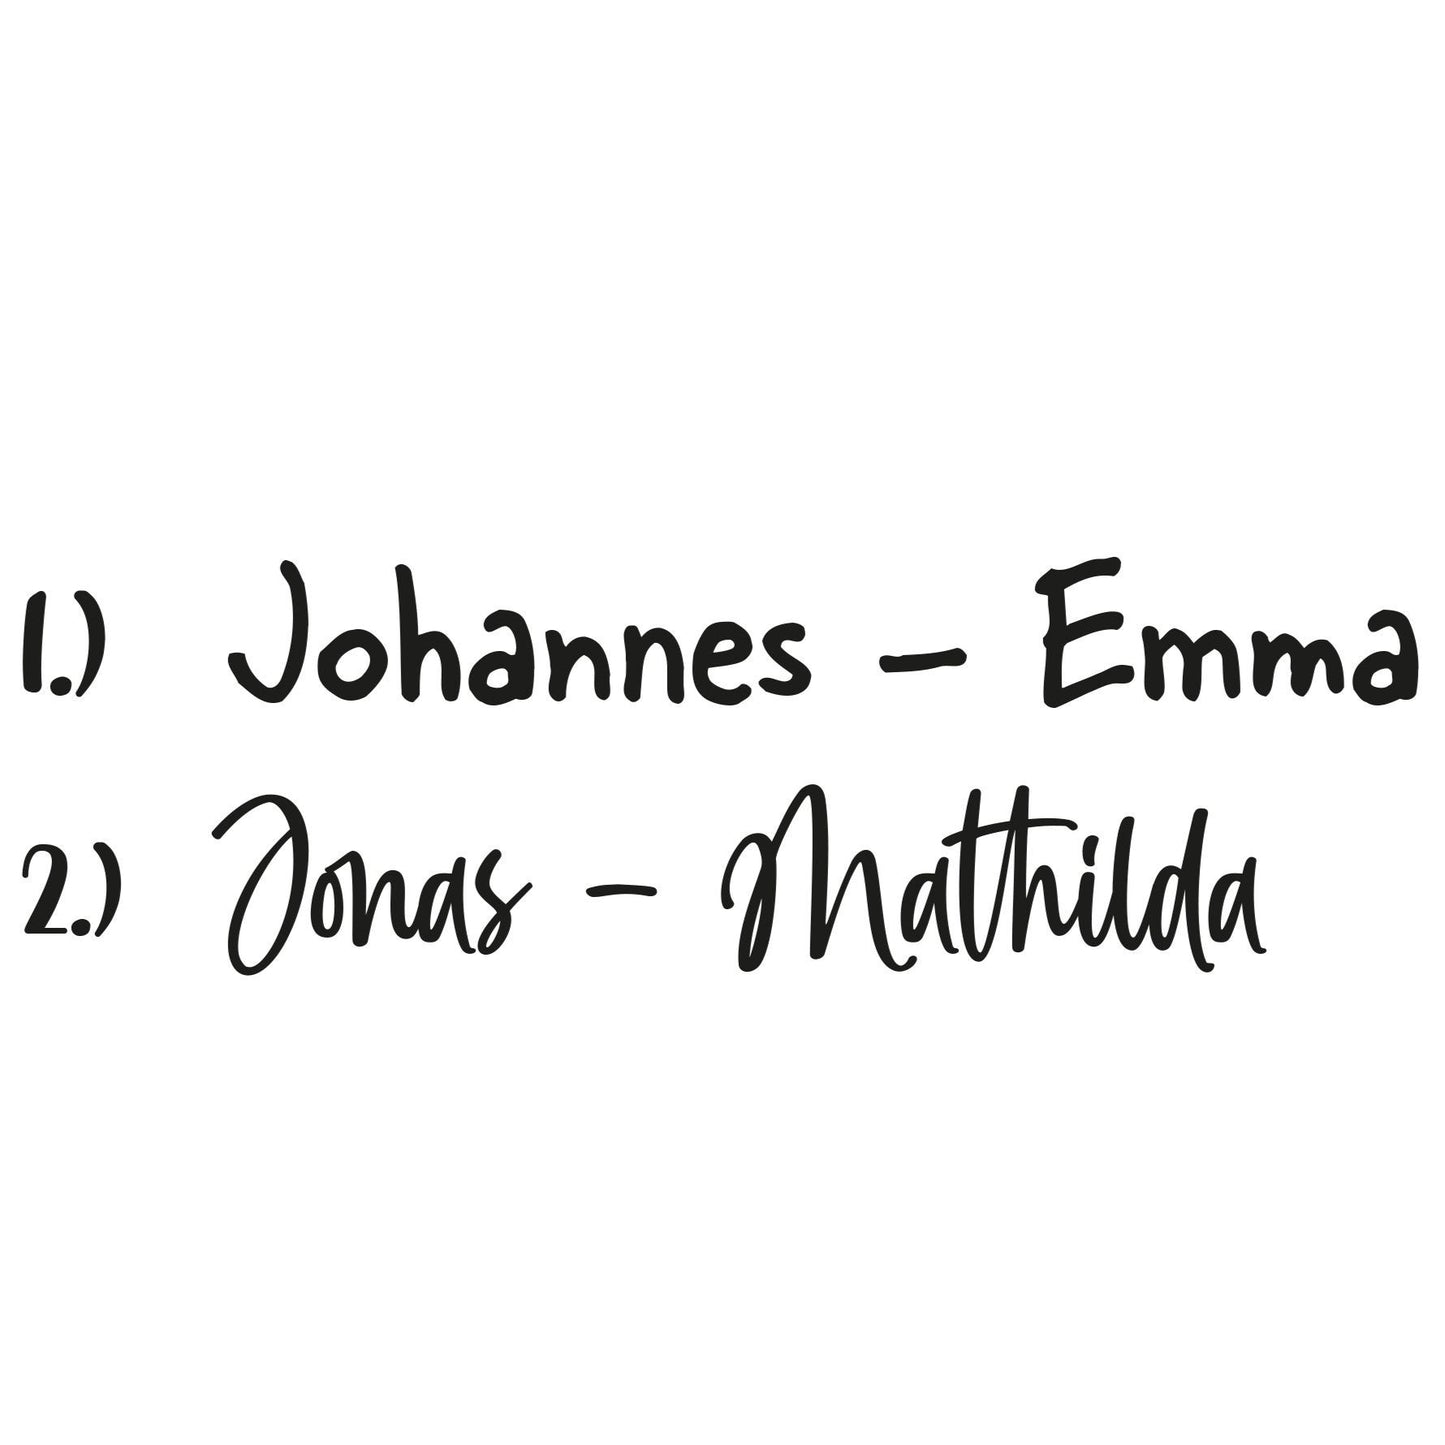 1.) Johannes - Emma
2.) Jonas - Mathilda